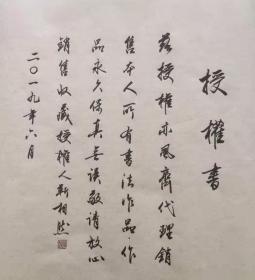 授權书
兹授權亦風齋代理銷
售本人所有書法作品·作
品永久保真无误敬请放心
銷售收藏授權人靳相然
二〇一九年六月